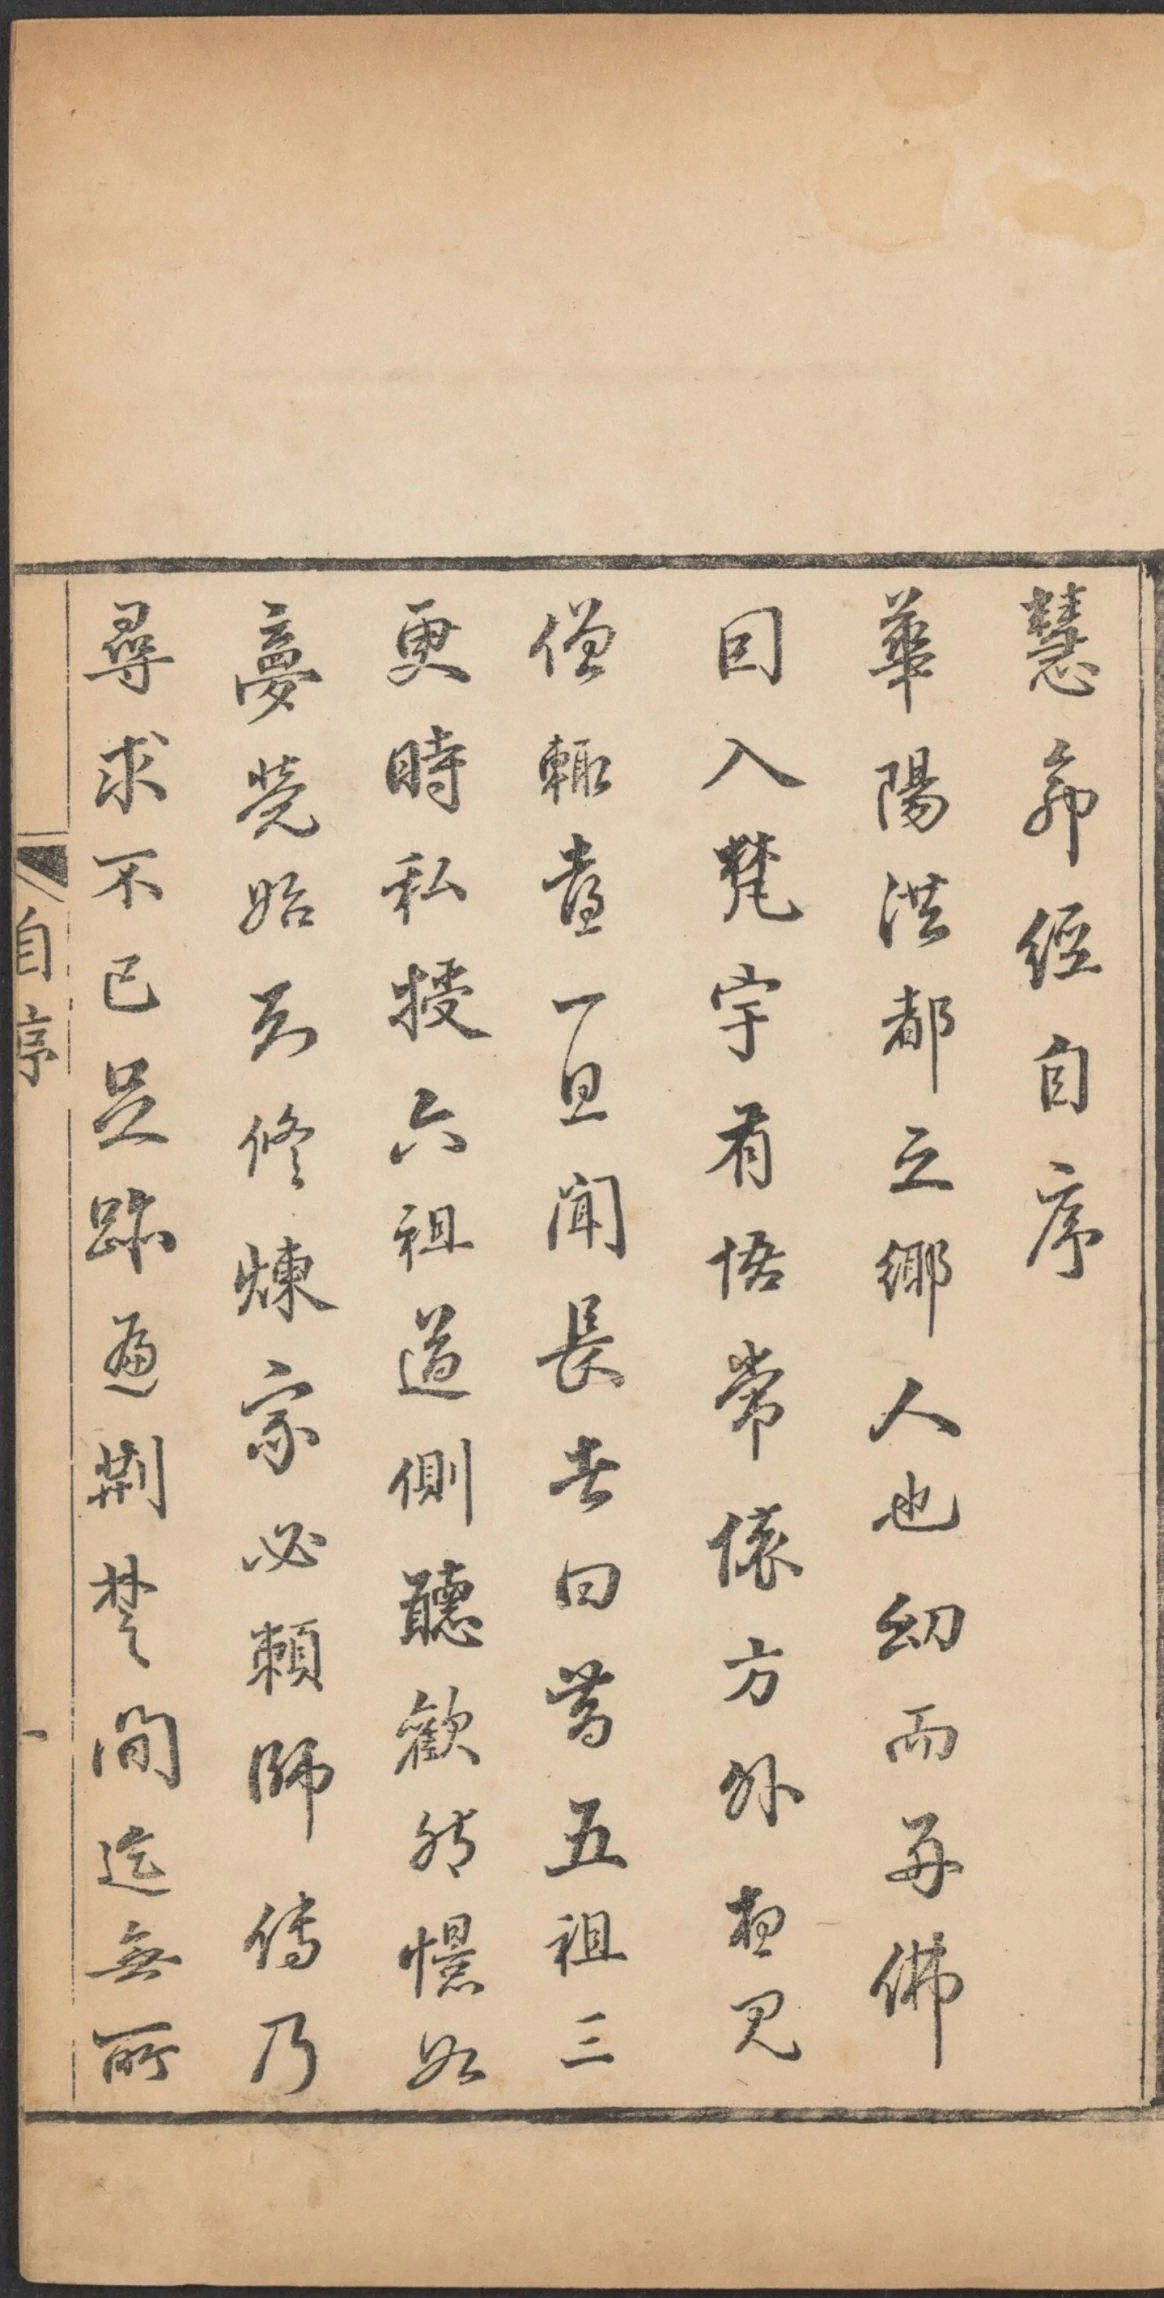 慧命經自序
華陽洪都之鄉人也幼而好佛
因入梵宇有悟常懷方外想見
僧輒喜一旦聞長者曰昔五祖三
更時私授六祖道側聽歡然憬如
夢覺始知修煉家必賴師傳乃
尋求不已足跡遍荊楚間迄無所
自序
一